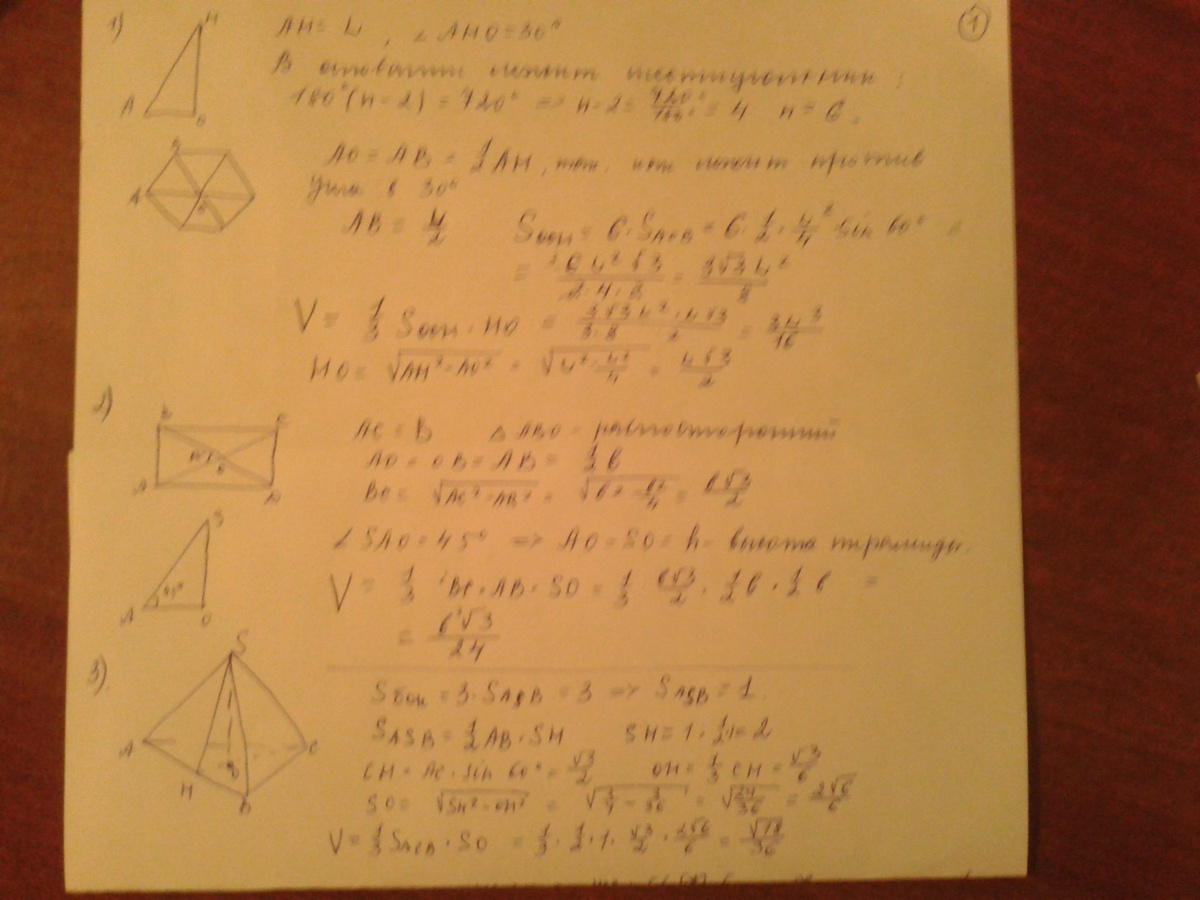 ①
1) AH = L, ∠AHO = 30°
В основании лежит шестиугольник;
180°(n-2) = 720° => n-2 = 720°/180° = 4 n = 6.
AO = AB = 1/2 AH, т.к. лежит против
угла в 30°
AB = L/2 Sосн = 6·SAOB = 6·1/2·L²/4·sin 60° =
= 6L²√3/2·4·2 = 3√3L²/8
V = 1/3 Sосн·HO = 3√3L²·L√3/3·8·2 = 3L³/16
HO = √(AH²-AO²) = √(L²-L²/4) = L√3/2
2) AC = B ΔABO - равносторонний
AO = OB = AB = 1/2 b
BC = √(AC²-AB²) = √(b²-b²/4) = b√3/2
∠SAO = 45° => AO = SO = h - высота пирамиды.
V = 1/3 BC·AB·SO = 1/3·b√3/2·1/2 b·1/2 b =
= b³√3/24
3) Sбок = 3·SASB = 3 => SASB = 1
SASB = 1/2 AB·SH SH = 1·1/2 = 2
CH = AC·sin 60° = √3/2 OH = 1/3 CH = √3/6
SO = √(SH²-OH²) = = √(24/36) = 2√6/6
V = 1/3 SACB·SO = 1/3·1/2·1·√3/2·2√6/6 = √18/36
A H O
A B O
B C A D O
S A O 45°
S A H B C O